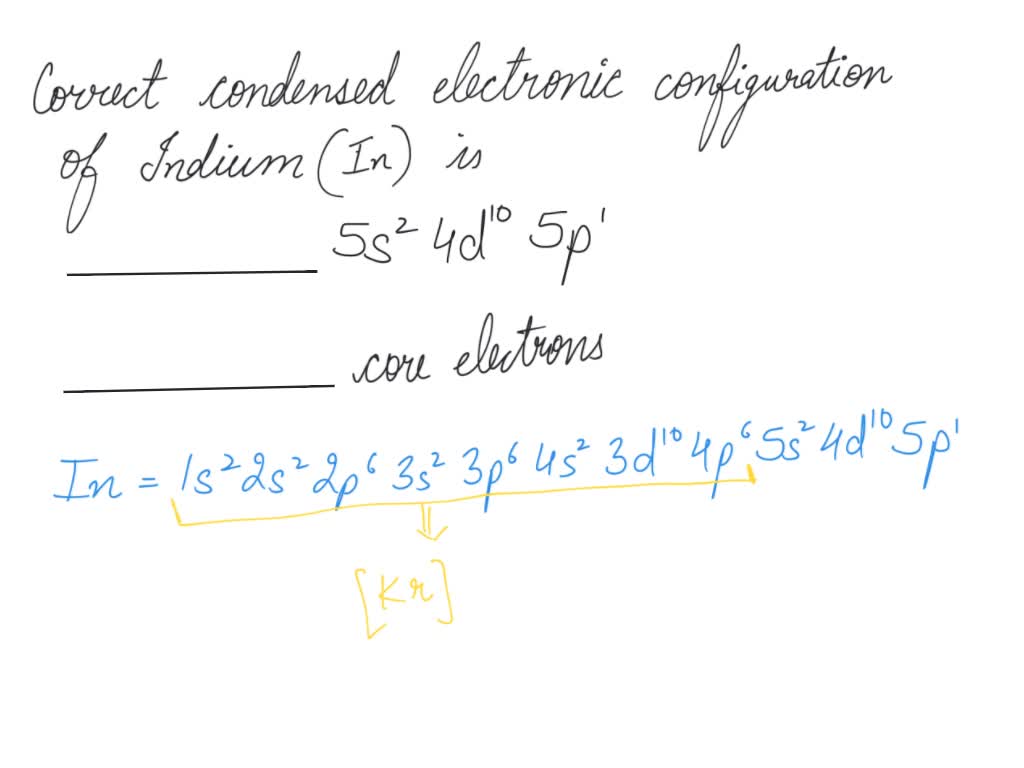 Correct condensed electronic configuration
of Indium (In) is
__________ 5s² 4d¹⁰ 5p¹
__________ core electrons
In = 1s² 2s² 2p⁶ 3s² 3p⁶ 4s² 3d¹⁰ 4p⁶ 5s² 4d¹⁰ 5p¹
[Kr]